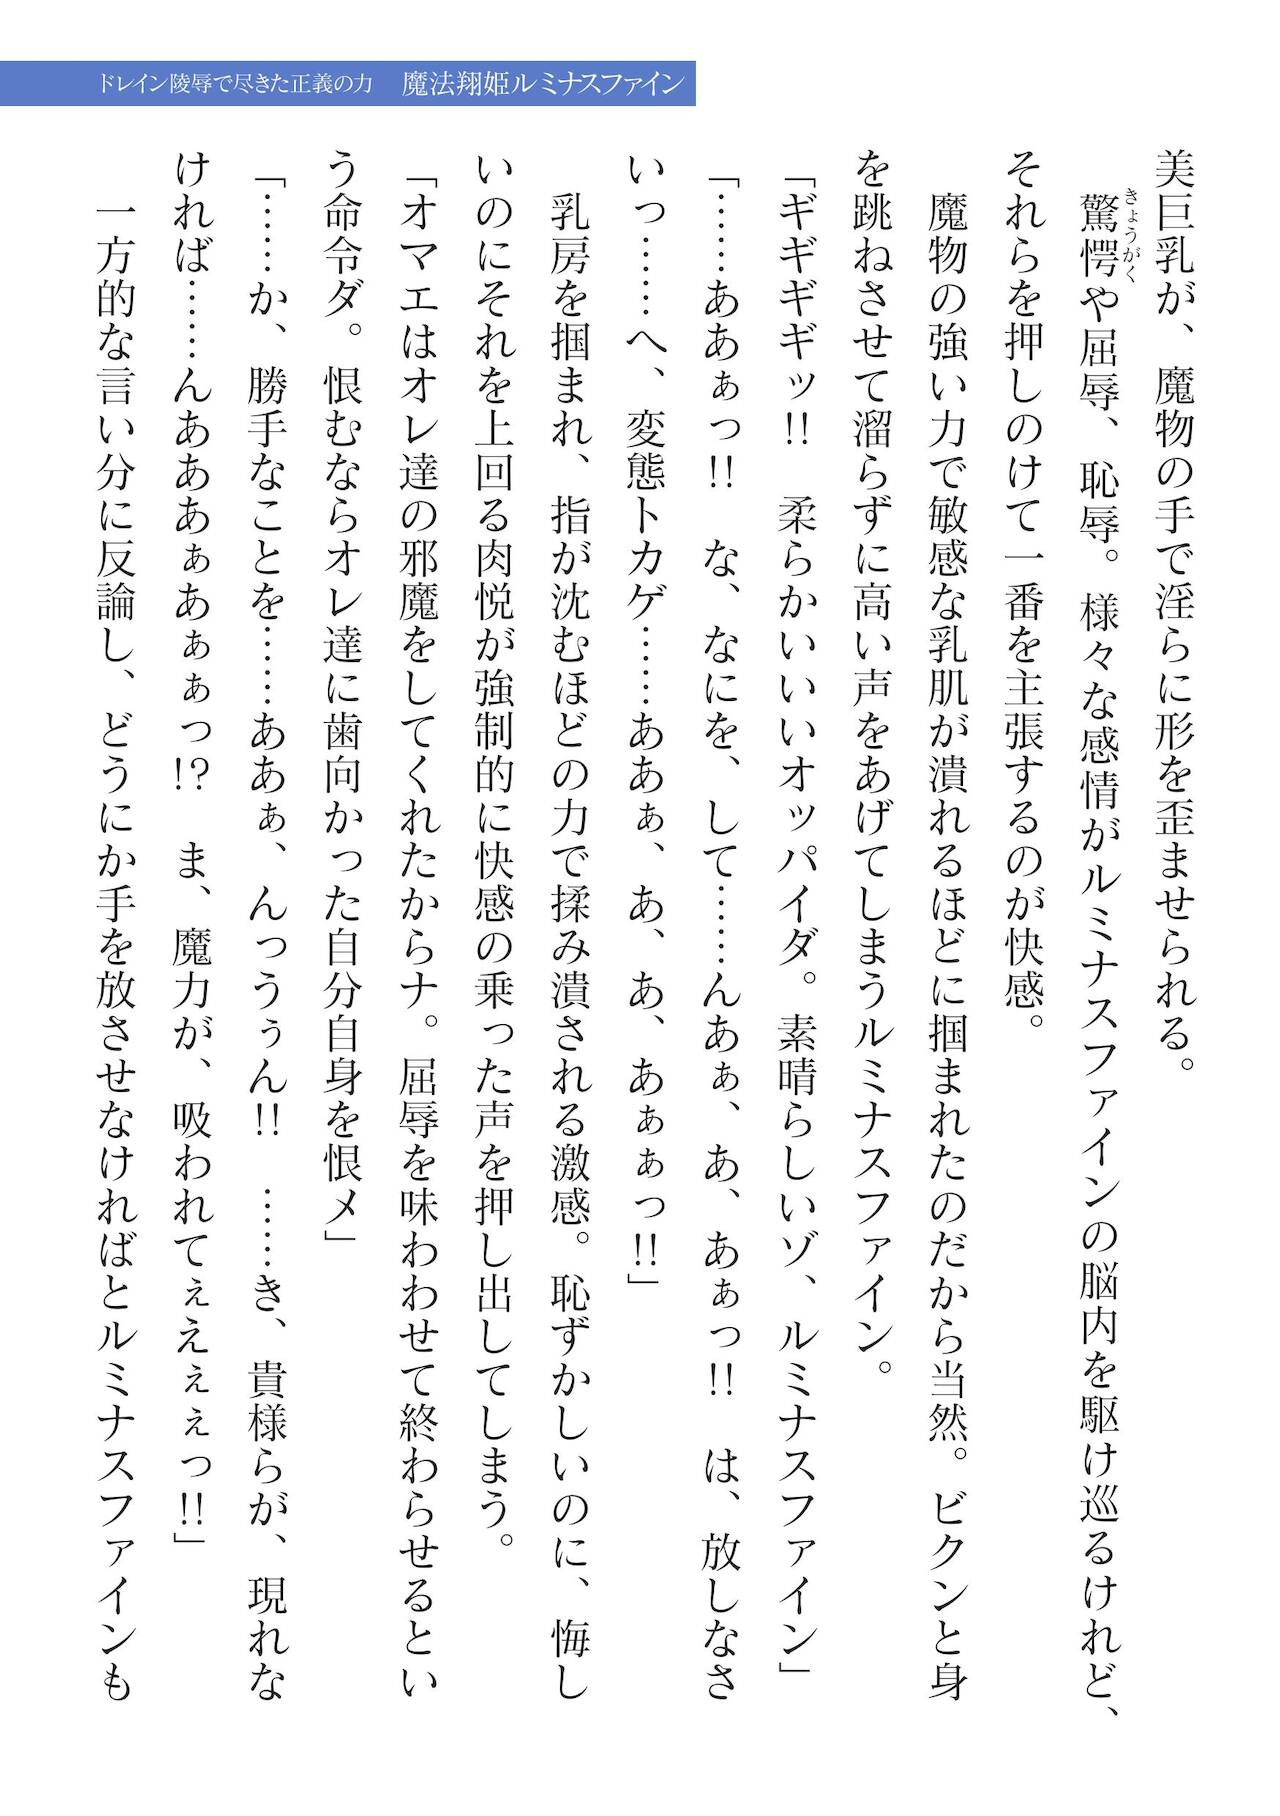 ドレイン陵辱で尽きた正義の力　魔法翔姫ルミナスファイン
美巨乳が、魔物の手で淫らに形を歪ませられる。
きょうがく
　驚愕や屈辱、恥辱。様々な感情がルミナスファインの脳内を駆け巡るけれど、
それらを押しのけて一番を主張するのが快感。
　魔物の強い力で敏感な乳肌が潰れるほどに掴まれたのだから当然。ビクンと身
を跳ねさせて溜らずに高い声をあげてしまうルミナスファイン。
「ギギギギッ!!　柔らかいいいオッパイダ。素晴らしいゾ、ルミナスファイン」
「……ああぁっ!!　な、なにを、して……んあぁ、あ、あぁっ!!　は、放しなさ
いっ……へ、変態トカゲ……ああぁ、あ、あ、あぁぁっ!!」
　乳房を掴まれ、指が沈むほどの力で揉み潰される激感。恥ずかしいのに、悔し
いのにそれを上回る肉悦が強制的に快感の乗った声を押し出してしまう。
「オマエはオレ達の邪魔をしてくれたからナ。屈辱を味わわせて終わらせるとい
う命令ダ。恨むならオレ達に歯向かった自分自身を恨メ」
「……か、勝手なことを……ああぁ、んっうぅん!!　……き、貴様らが、現れな
ければ……んあああぁあぁぁっ!?　ま、魔力が、吸われてぇえぇぇっ!!」
　一方的な言い分に反論し、どうにか手を放させなければとルミナスファインも